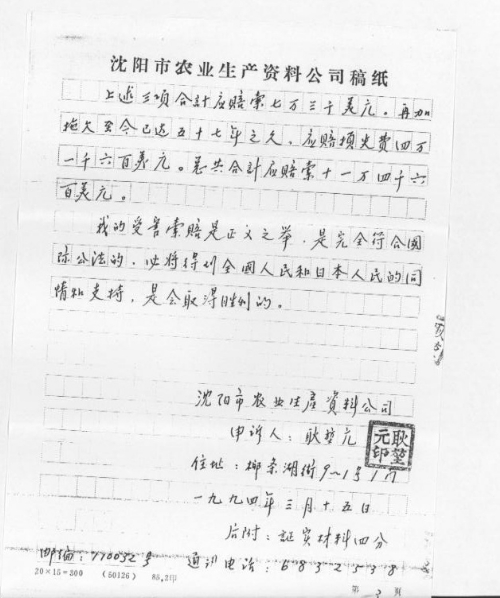 沈阳市农业生产资料公司稿纸
上述三项合計应賠索七万三千美元。再加
拖欠至今已达五十七年之久，应賠損失费四万
一千六百美元。总共合計应賠索十一万四千六
百美元。
我的受害索賠是正义之举，是完全符合國
际公法的，必将得到全國人民和日本人民的同
情和支持，是会取得胜利的。
沈阳市农业生産資料公司
申诉人：耿堃元
耿堃元印
住址：柳条湖街9～1号1门
一九九四年三月十五日
后附：証实材料四分
邮编：110032号 通讯电话：6832538
20×15=300 (60126) 85.2印
第 3 頁